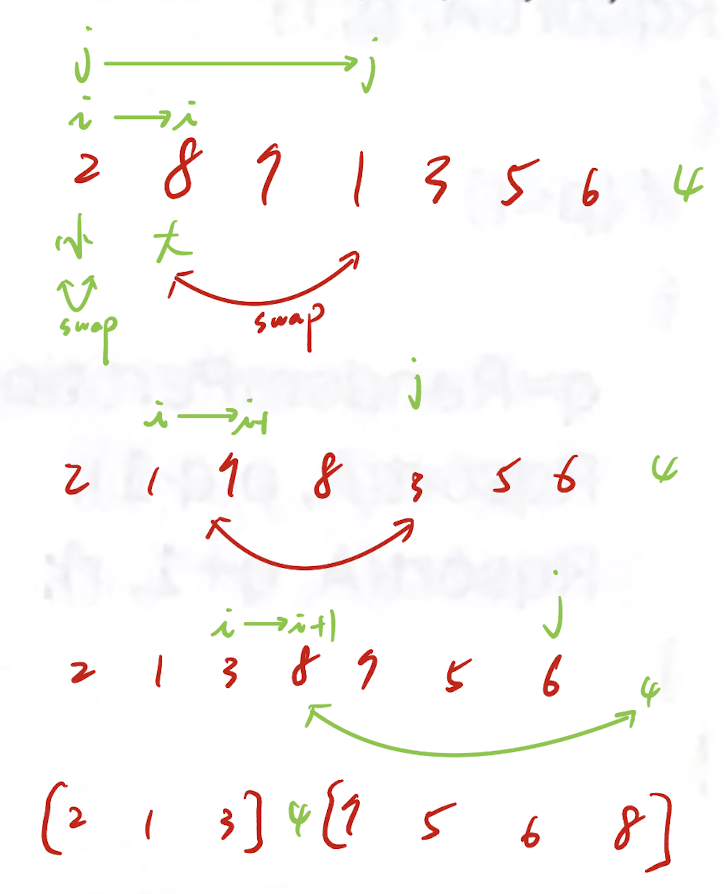 j → j
i → i
2 8 7 1 3 5 6 4
小 大
swap swap
j
i → i+1
2 1 7 8 3 5 6 4
j
i → i+1
2 1 3 8 7 5 6 4
[2 1 3] 4 [7 5 6 8]